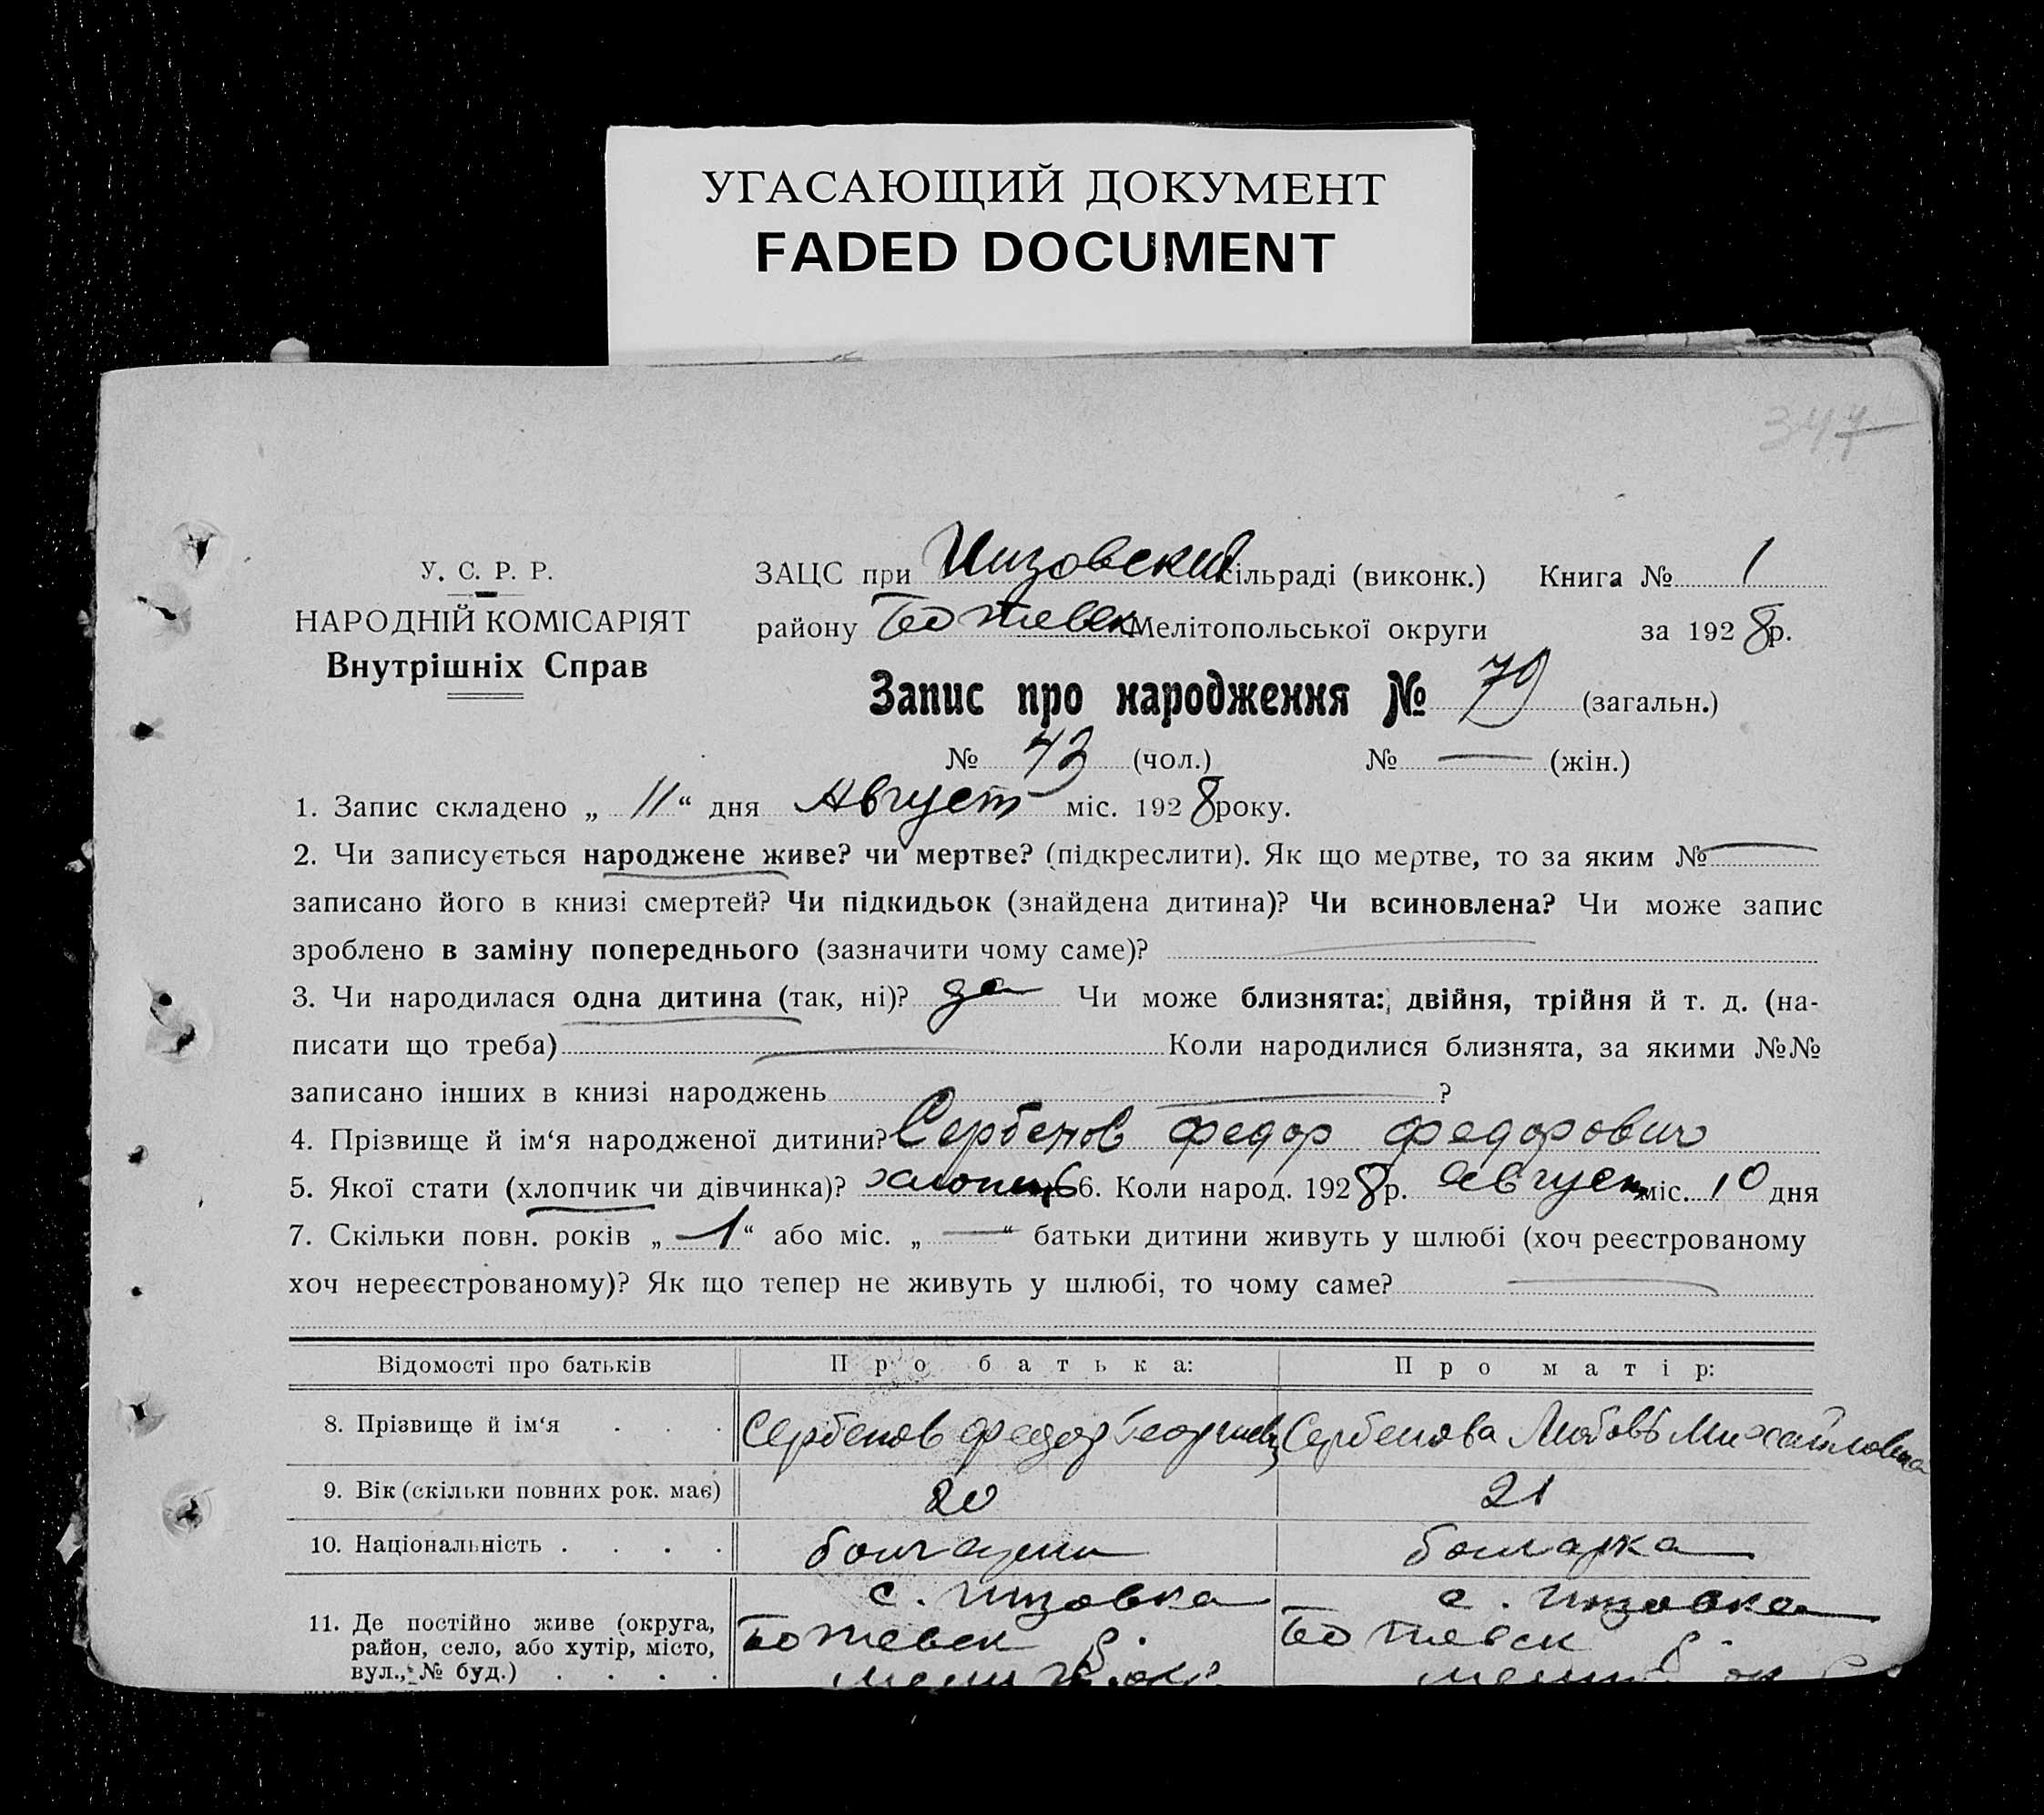 УГАСАЮЩИЙ ДОКУМЕНТ
FADED DOCUMENT
347
У. С. Р. Р.
НАРОДНІЙ КОМІСАРІЯТ
Внутрішніх Справ
ЗАЦС при Низовский сільраді (виконк.) Книга № 1
району Ботиевск Мелітопольської округи за 1928 р.
Запис про народження № 79 (загальн.)
№ 43 (чол.) № — (жін.)
1. Запис складено „ 11 “ дня Август міс. 1928 року.
2. Чи записується народжене живе? чи мертве? (підкреслити). Як що мертве, то за яким № —
записано його в книзі смертей? Чи підкидьок (знайдена дитина)? Чи всиновлена? Чи може запис
зроблено в заміну попереднього (зазначити чому саме)? —
3. Чи народилася одна дитина (так, ні)? да Чи може близнята: двійня, трійня й т. д. (на-
писати що треба) — Коли народилися близнята, за якими №№
записано інших в книзі народжень — ?
4. Прізвище й ім‘я народженої дитини? Сербенов Федор Федорович
5. Якої стати (хлопчик чи дівчинка)? хлопець 6. Коли народ. 1928 р. август міс. 10 дня
7. Скільки повн. років „ 1 “ або міс. „ — “ батьки дитини живуть у шлюбі (хоч реєстрованому
хоч нереєстрованому)? Як що тепер не живуть у шлюбі, то чому саме? —
Відомості про батьків Про батька: Про матір:
8. Прізвище й ім‘я . . . Сербенов Федор Георгиев Сербенова Любовь Михайловна
9. Вік (скільки повних рок. має) 20 21
10. Національність . . . . болгарин болгарка
с. Низовка с. Низовка
11. Де постійно живе (округа, Ботиевск р. Ботиевск р.
район, село, або хутір, місто,
вул., № буд.) . . . . мелит. окр. мелит. ок